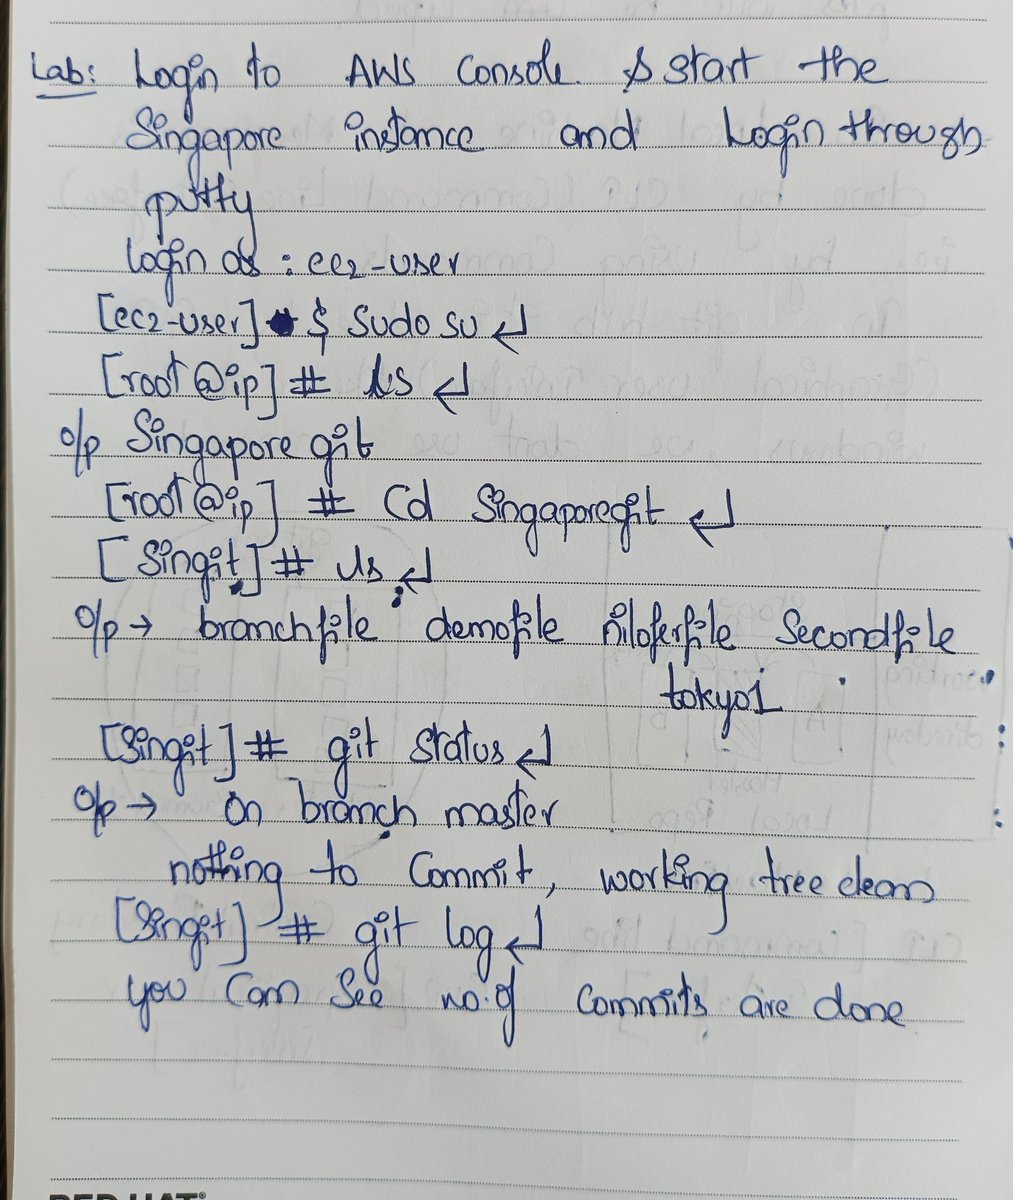 Lab: Login to AWS Console & start the
Singapore instance and Login through
putty
login as : ec2-user
[ec2-user] $ sudo su ↵
[root@ip] # ls ↵
o/p Singapore git
[root@ip] # Cd Singaporegit ↵
[Singit] # ls ↵
o/p → branchfile demofile niloferfile Secondfile
tokyo1
[Singit] # git status ↵
o/p → On branch master
nothing to Commit, working tree clean
[Singit] # git log ↵
you Can See no. of Commits are done
RED HAT®